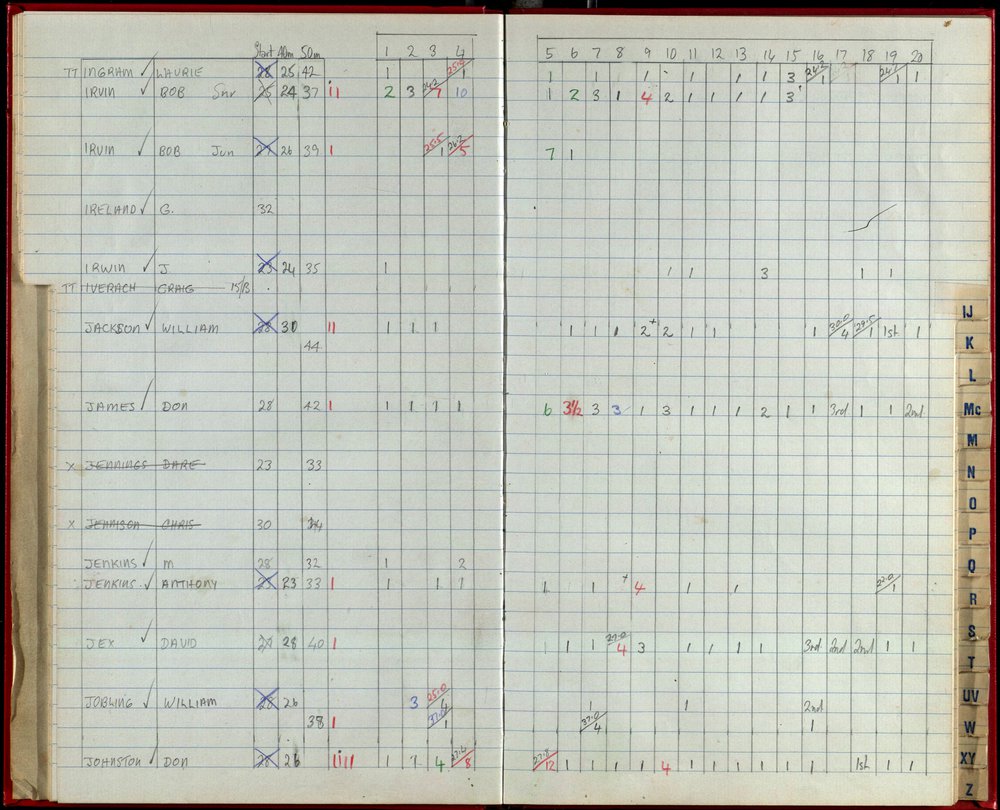 Start 40m 50m 1 2 3 4 5 6 7 8 9 10 11 12 13 14 15 16 17 18 19 20
TT INGRAM ✓ LAURIE 28 25 42 1 1 25.0 1 1 1 1 1 1 1 3 24.2 1 24.2 1 1
IRVIN ✓ BOB Snr 25 24 37 11 2 3 24.2 7 10 1 2 3 1 4 2 1 1 1 1 3
IRVIN ✓ BOB Jun 27 26 39 1 25.5 1 26.2 5 7 1
IRELAND ✓ G. 32
IRWIN ✓ J 25 24 35 1 1 1 3 1 1
TT IVERACH CRAIG 15/3
JACKSON ✓ WILLIAM 28 30 11 1 1 1 1 1 1 2+ 2 1 1 1 30.0 4 29.5 1 1st 1
44
JAMES ✓ DON 28 42 1 1 1 1 1 6 3½ 3 3 1 3 1 1 1 2 1 1 3rd 1 1 2nd
X JENNINGS DARE 23 33
X JENNISON CHRIS 30 34
JENKINS ✓ M 28 32 1 2
JENKINS ✓ ANTHONY 25 23 33 1 1 1 1 1 1 + 4 1 1 22.0 1
JEX ✓ DAVID 29 28 40 1 1 1 27.0 4 3 1 1 1 1 3rd 2nd 2nd 1 1
JOBLING ✓ WILLIAM 28 26 3 25.0 4 1 1 2nd
38 1 37.0 1 37.0 4 1
JOHNSTON ✓ DON 28 26 11111 1 1 4 27.6 8 27.8 12 1 1 1 1 4 1 1 1 1 1 1 1st 1 1
IJ
K
L
Mc
M
N
O
P
Q
R
S
T
UV
W
XY
Z